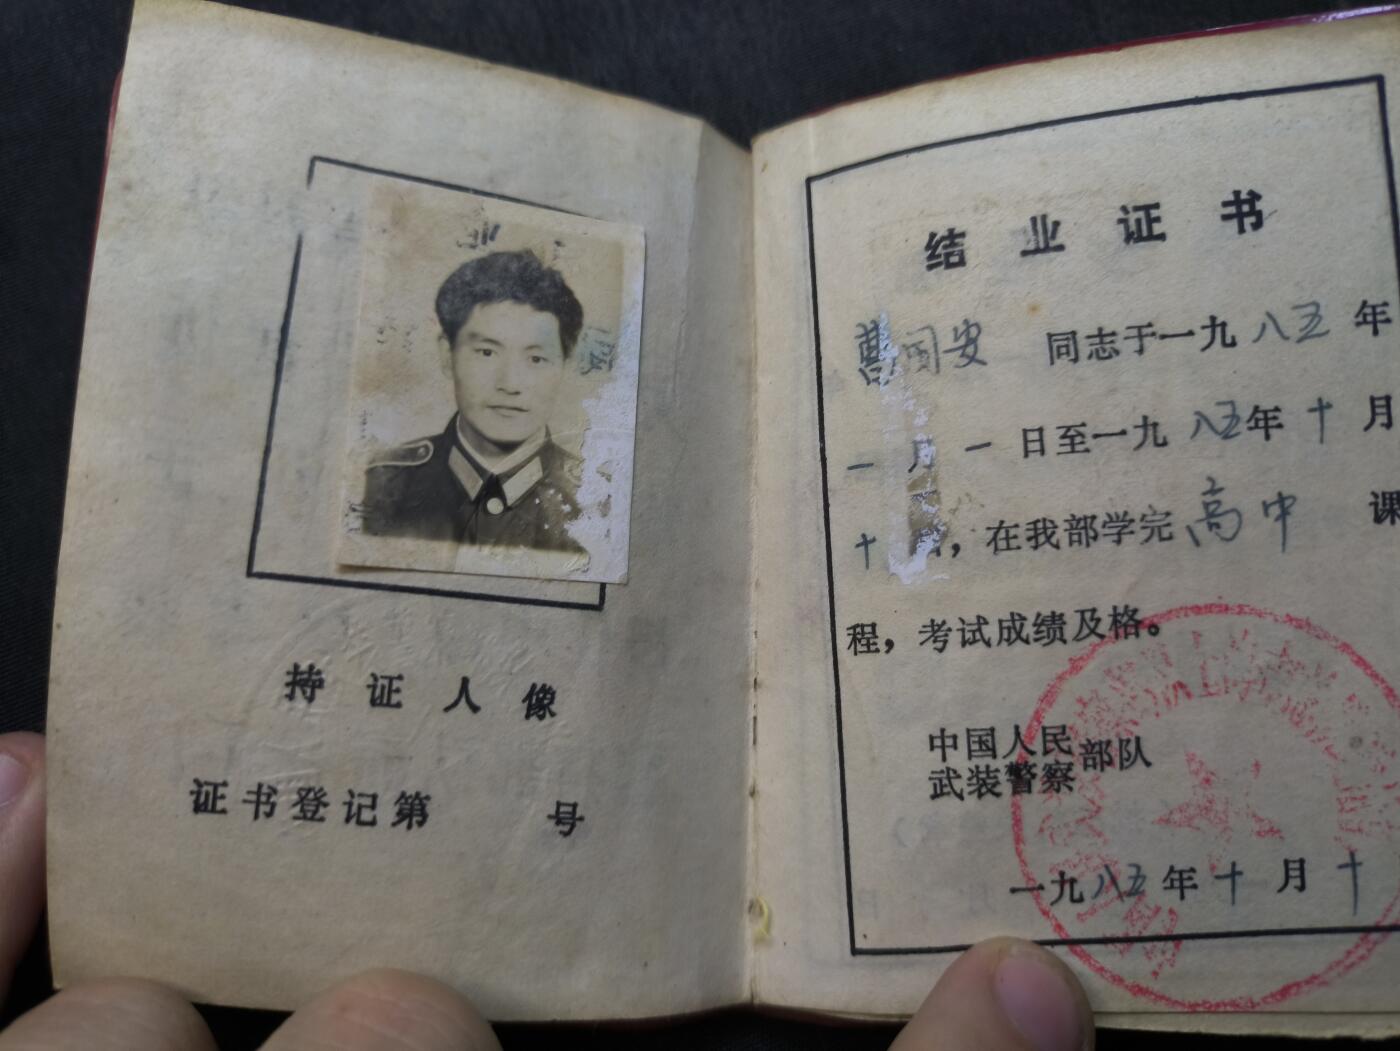 持证人像
证书登记第 号
结业证书
曹国安 同志于一九八五年
一月一日至一九八五年十月
十日，在我部学完高中 课
程，考试成绩及格。
中国人民
武装警察部队
一九八五年十月十